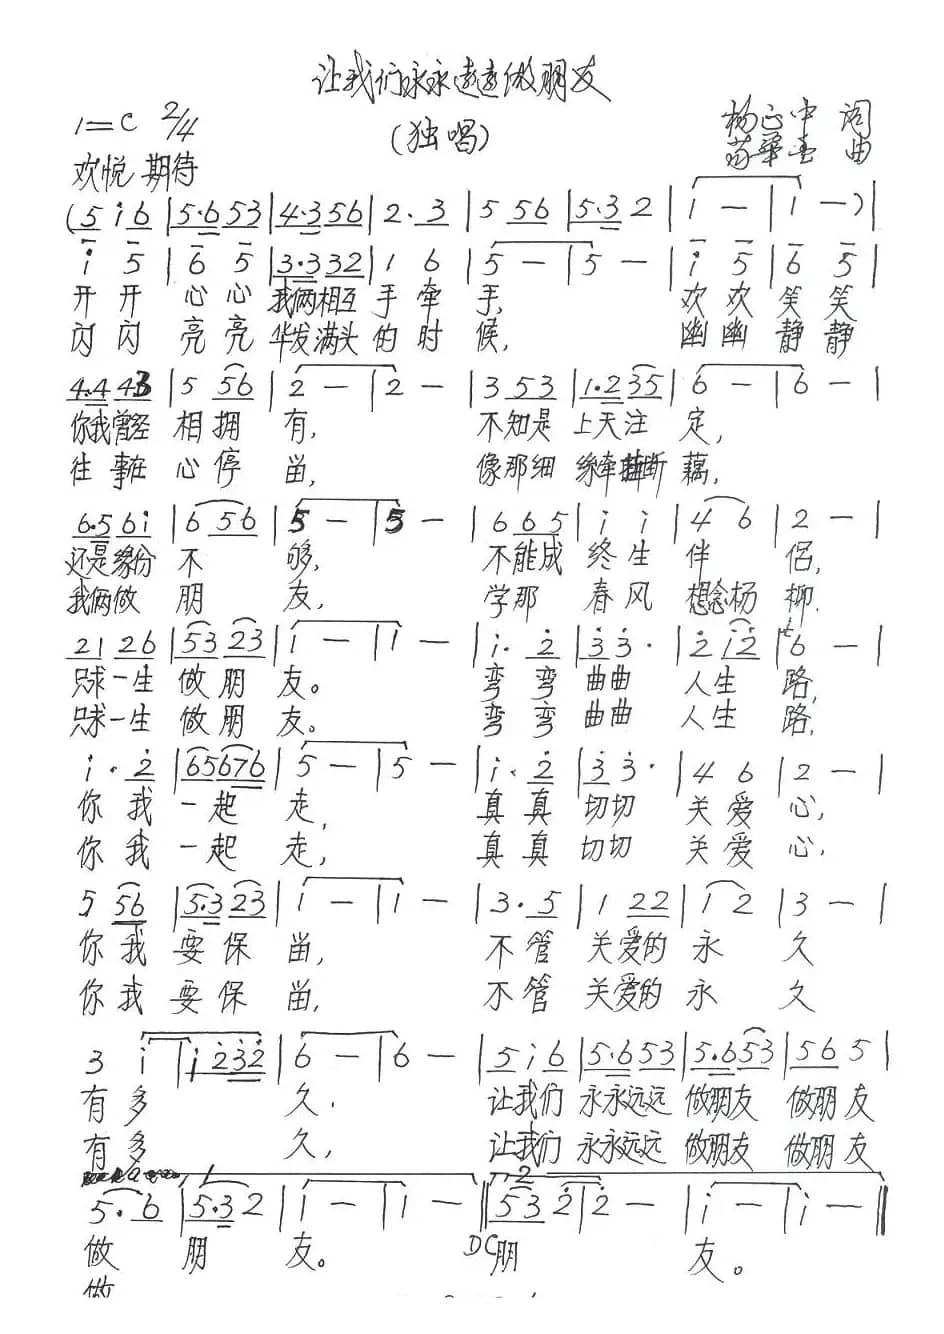 让我们永永远远做朋友
(独唱)
1=C 2/4
杨正中 词
曲
欢悦 期待
(5 i 6 | 5·6 53 | 4·3 56 | 2·3 | 5 56 | 5·3 2 | i — | i — ) |
i 5 | 6 5 | 3·3 32 | 1 6 | 5 — | 5 — | i 5 | 6 5 |
开开 心心 我俩相互 手牵 手, 欢欢 笑笑
闪闪 亮亮 华发满头 的时 候, 幽幽 静静
4·4 43 | 5 56 | 2 — | 2 — | 3 53 | 1·2 35 | 6 — | 6 — |
你我曾经 相拥 有, 不知是 上天注 定,
往事在 心停 留, 像那细 丝牵 断 藕,
6·5 6i | 6 56 | 5 — | 5 — | 6 65 | i i | 4 6 | 2 — |
还是缘份 不 够, 不能成 终生 伴 侣,
我俩做 朋 友, 学那 春风 想念杨 柳.
21 26 | 53 23 | i — | i — | i· 2 | 3 3· | 2 i2 | 6 — |
只求一生 做朋 友。 弯弯 曲曲 人生 路,
只求一生 做朋 友。 弯弯 曲曲 人生 路,
i· 2 | 65 676 | 5 — | 5 — | i· 2 | 3 3· | 4 6 | 2 — |
你我 一起 走, 真真 切切 关爱 心,
你我 一起 走, 真真 切切 关爱 心,
5 56 | 5·3 23 | i — | i — | 3· 5 | 1 22 | i 2 | 3 — |
你我 要保 留, 不管 关爱的 永 久
你我 要保 留, 不管 关爱的 永 久
3 i | i 232 | 6 — | 6 — | 5 i 6 | 5·6 53 | 5·6 53 | 56 5 |
有多 久. 让我们 永永远远 做朋友 做朋友
有多 久, 让我们 永永远远 做朋友 做朋友
1 2
5· 6 | 5·3 2 | i — | i — || 53 2 | 2 — | i — | i — ||
做 朋 友。 DC 朋 友。
做